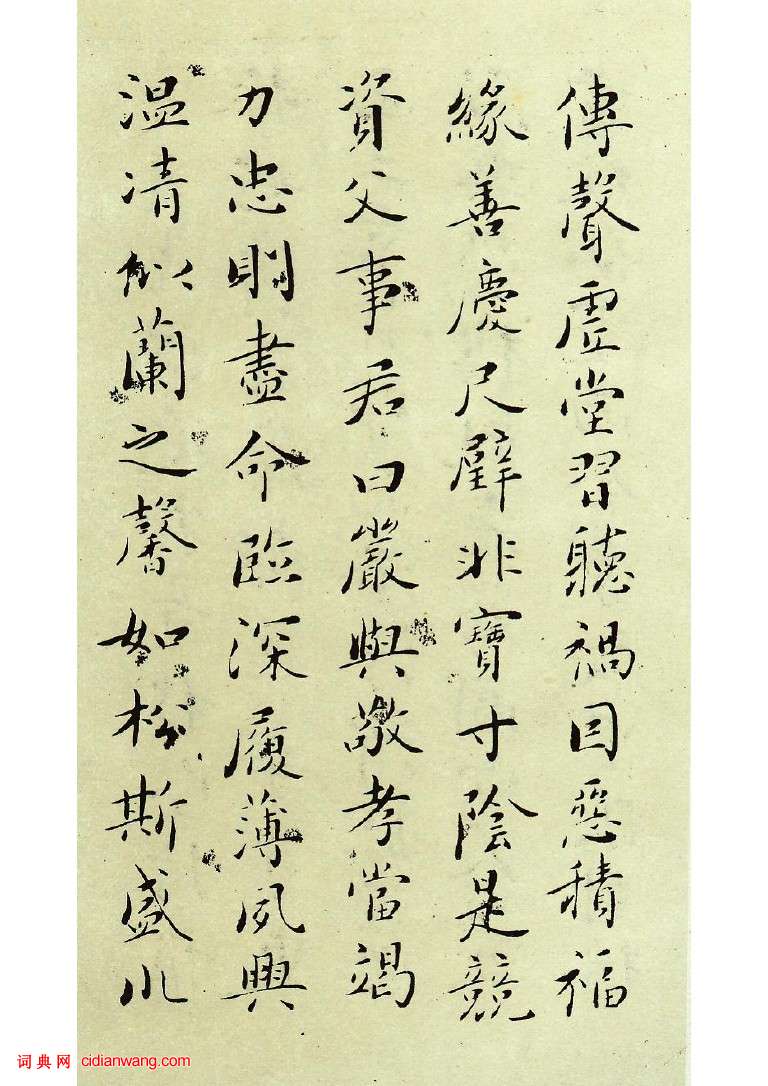 傳聲虛堂習聽禍因惡積福
緣善慶尺璧非寶寸陰是競
資父事君曰嚴與敬孝當竭
力忠則盡命臨深履薄夙興
温凊似蘭之馨如松斯盛川
词典网 cidianwang.com